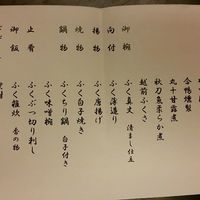 合鴨燻製
丸十甘露煮
秋刀魚柔らか煮
越前ふくさ
御椀 ふく真丈 清まし仕立
向付 ふく薄造り
揚物 ふく唐揚げ
焼物 ふく白子焼き
鍋物 ふくちり鍋 白子付き
ふく味噌椀
止肴 ふくぶつ切り刺し
御飯 ふく雑炊 香の物